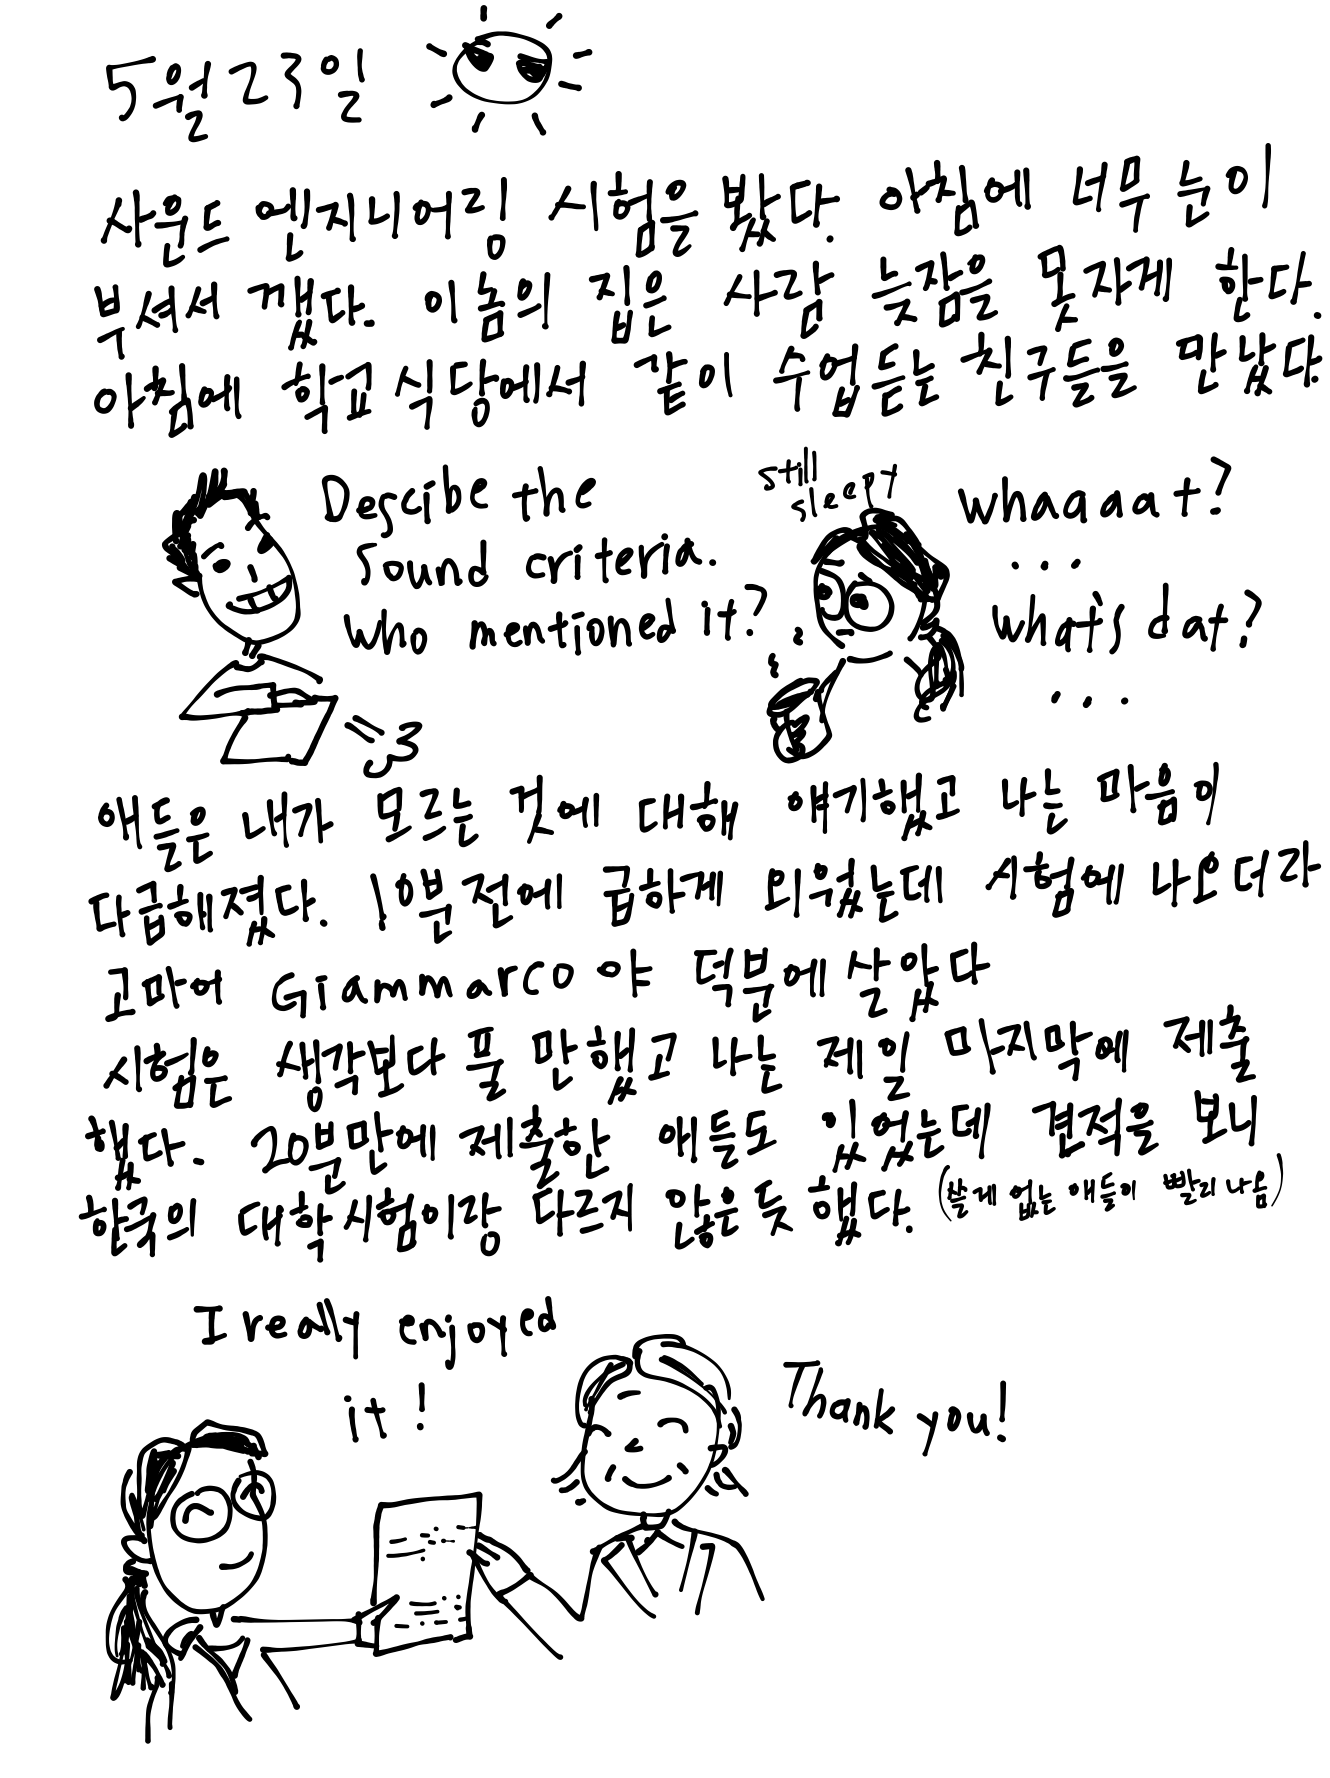 5월 23일
사운드 엔지니어링 시험을 봤다. 아침에 너무 눈이
부셔서 깼다. 이놈의 집은 사람 늦잠을 못자게 한다.
아침에 학교 식당에서 같이 수업듣는 친구들을 만났다.
Descibe the
sound criteria.
who mentioned it?
still
sleepy
whaaaat?
...
what's dat?
...
애들은 내가 모르는 것에 대해 얘기했고 나는 마음이
다급해졌다. 10분 전에 급하게 외웠는데 시험에 나오더라
고마어 Giammarco야 덕분에 살았다
시험은 생각보다 풀 만했고 나는 제일 마지막에 제출
했다. 20분만에 제출한 애들도 있었는데 견적을 보니
한국의 대학시험이랑 다르지 않은듯 했다. (쓸게 없는 애들이 빨리 나옴)
I really enjoyed
it!
Thank you!